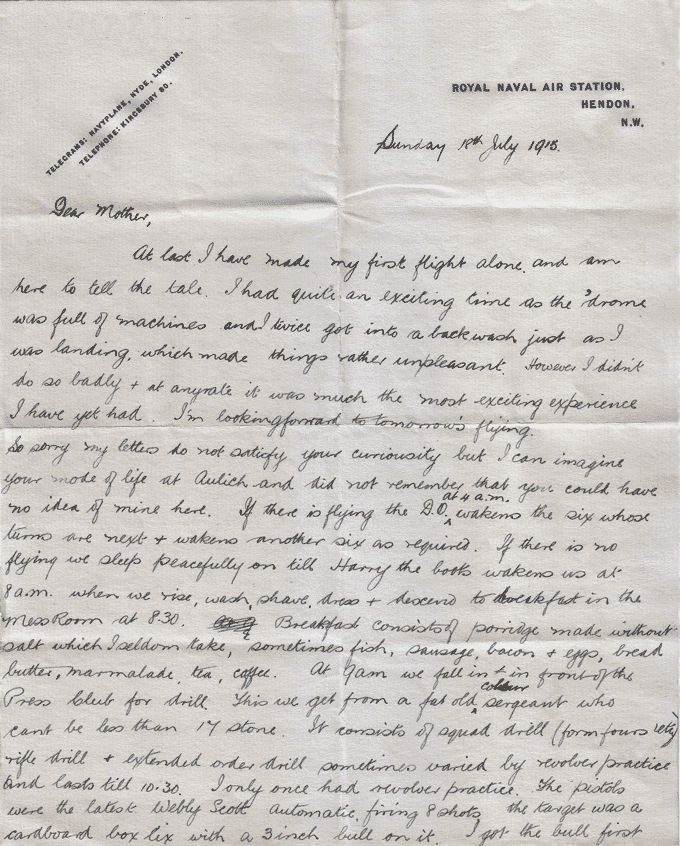 TELEGRAMS: NAVYPLANE, HYDE, LONDON.
TELEPHONE: KINGSBURY 80.
ROYAL NAVAL AIR STATION,
HENDON,
N.W.
Sunday 18th July 1915.
Dear Mother,
At last I have made my first flight alone and am
here to tell the tale. I had quite an exciting time as the 'drome
was full of machines and I twice got into a backwash just as I
was landing, which made things rather unpleasant. However I didn't
do so badly + at anyrate it was much the most exciting experience
I have yet had. I'm looking forward to tomorrow's flying.
So sorry my letters do not satisfy your curiousity but I can imagine
your mode of life at Aulich and did not remember that you could have
no idea of mine here. If there is flying the D.O. at 4 a.m. wakens the six whose
turns are next + wakens another six as required. If there is no
flying we sleep peacefully on till Harry the boots wakens us at
8 a.m. when we rise, wash, shave, dress + descend to breakfast in the
Mess Room at 8.30. Breakfast consists of porridge made without
salt which I seldom take, sometimes fish, sausage, bacon + eggs, bread
butter, marmalade, tea, coffee. At 9am we fall in + in front of the
Press Club for drill. This we get from a fat old colour sergeant who
cant be less than 17 stone. It consists of squad drill (form fours etc)
rifle drill + extended order drill sometimes varied by revolver practice
and lasts till 10.30. I only once had revolver practice. The pistols
were the latest Webly Scott automatic, firing 8 shots, the target was a
cardboard box lix with a 3 inch bull on it. I got the bull first